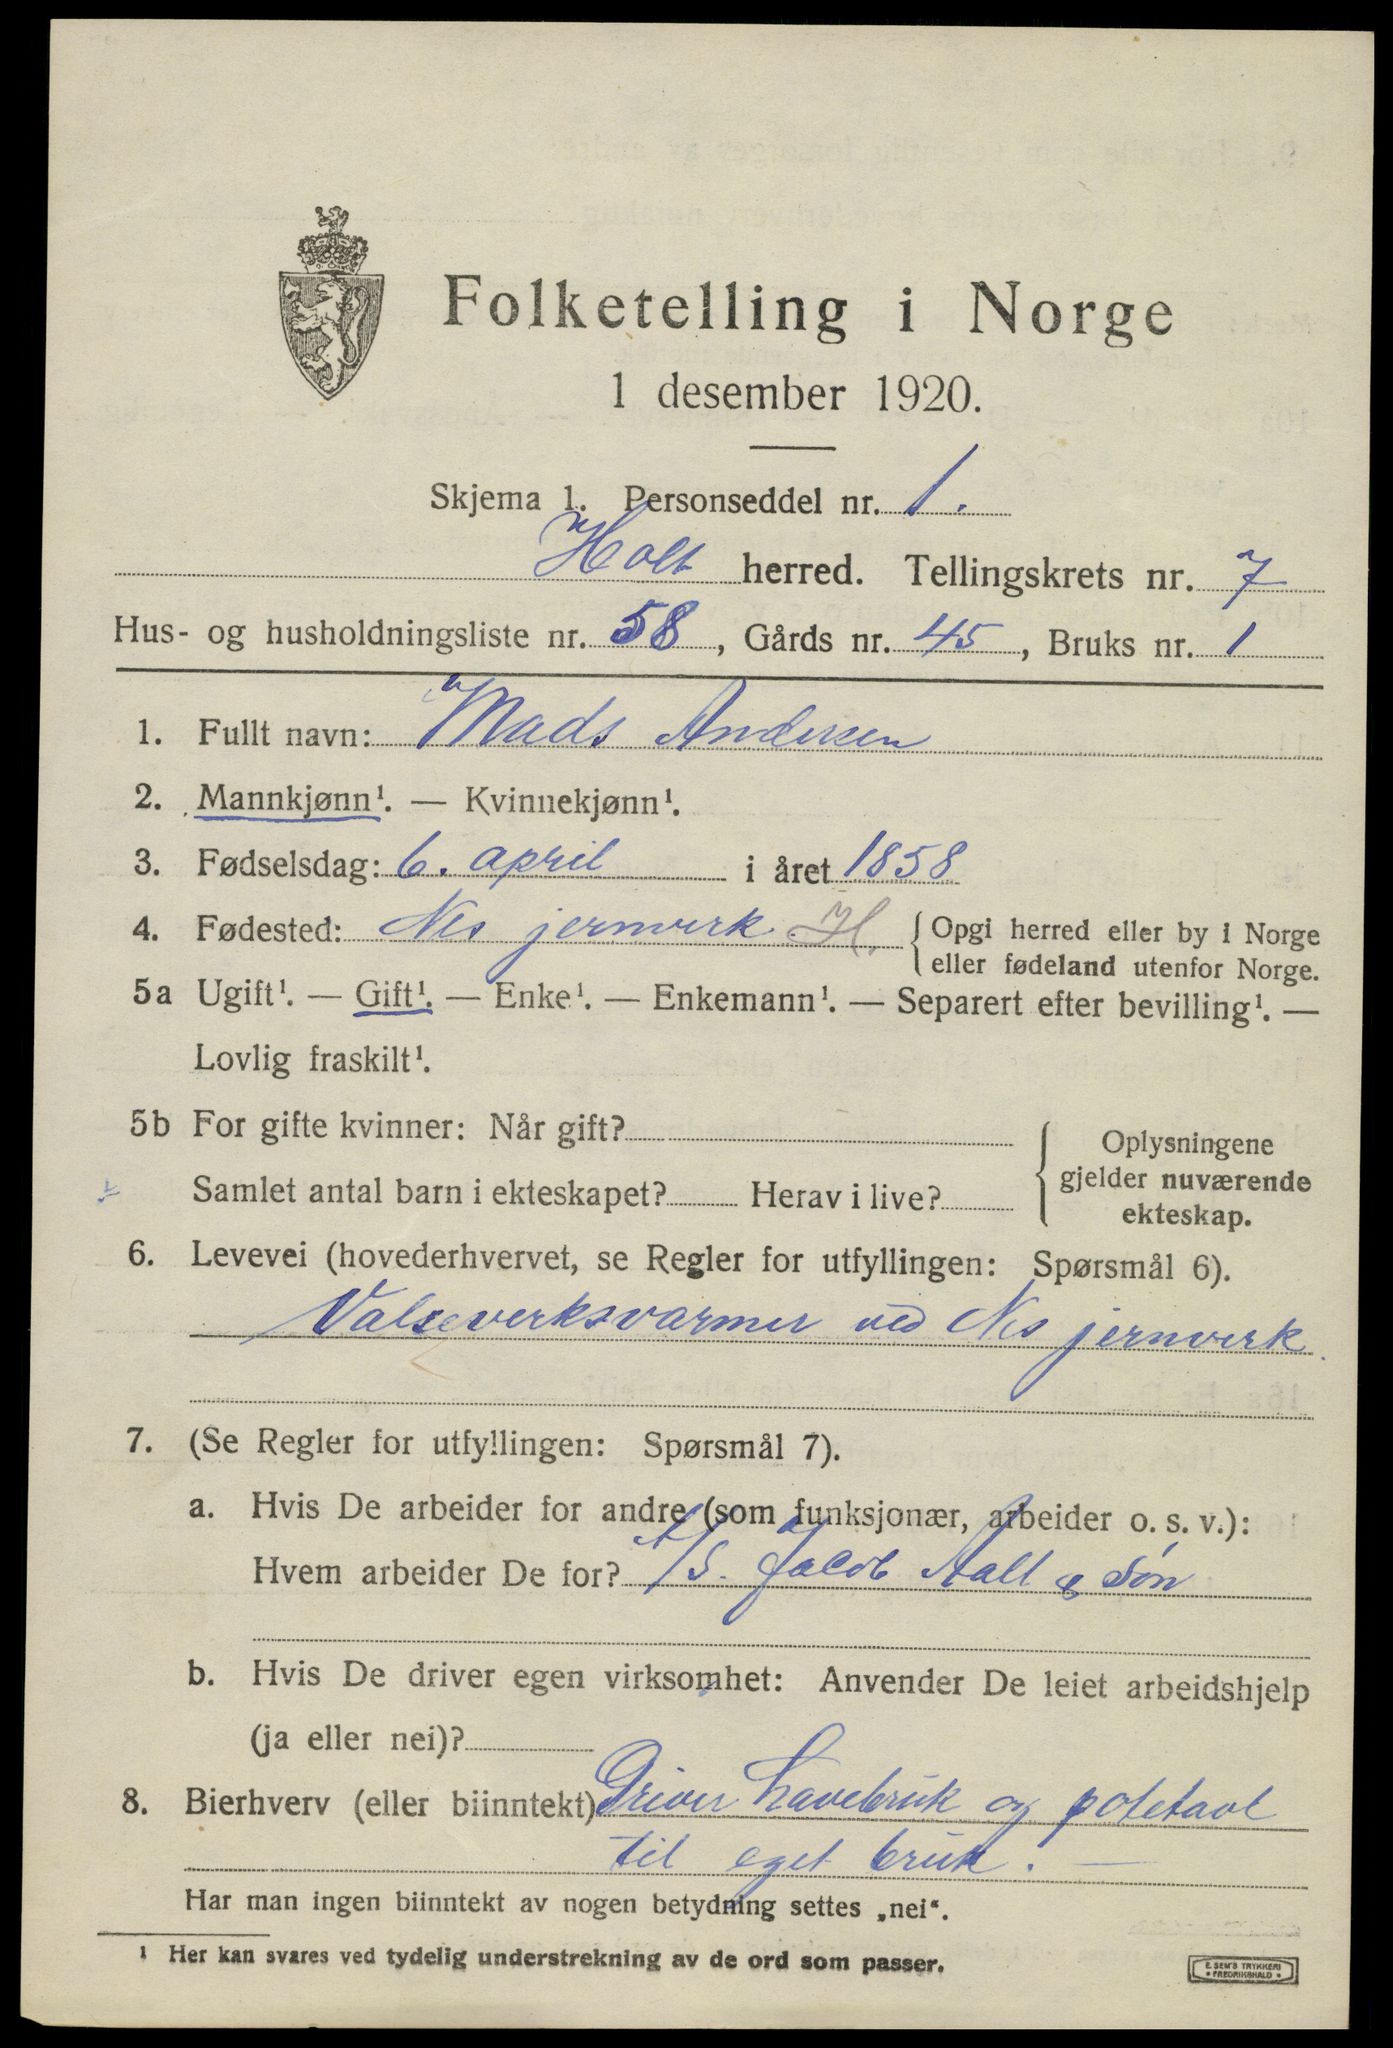 Folketelling i Norge
1 desember 1920.
Skjema 1. Personseddel nr. 1.
Holt herred. Tellingskrets nr. 7
Hus- og husholdningsliste nr. 58, Gårds nr. 45, Bruks nr. 1
1. Fullt navn: Mads Andersen
2. Mannkjønn¹. — Kvinnekjønn¹.
3. Fødselsdag: 6. april i året 1858
4. Fødested: Nes jernverk H. { Opgi herred eller by i Norge
eller fødeland utenfor Norge.
5a Ugift¹. — Gift¹. — Enke¹. — Enkemann¹. — Separert efter bevilling¹. —
Lovlig fraskilt¹.
5b For gifte kvinner: Når gift?
Samlet antal barn i ekteskapet? Herav i live?
Oplysningene
gjelder nuværende
ekteskap.
6. Levevei (hovederhvervet, se Regler for utfyllingen: Spørsmål 6).
Valseverksvarmer ved Nes jernverk.
7. (Se Regler for utfyllingen: Spørsmål 7).
a. Hvis De arbeider for andre (som funksjonær, arbeider o. s. v.):
Hvem arbeider De for? A/S. Jacob Aall & Søn
b. Hvis De driver egen virksomhet: Anvender De leiet arbeidshjelp
(ja eller nei)?
8. Bierhverv (eller biinntekt) Driver havebruk og potetavl
til eget bruk. —
Har man ingen biinntekt av nogen betydning settes „nei“.
¹ Her kan svares ved tydelig understrekning av de ord som passer.
E. SEM'S TRYKKERI
• FREDRIKSHALD •